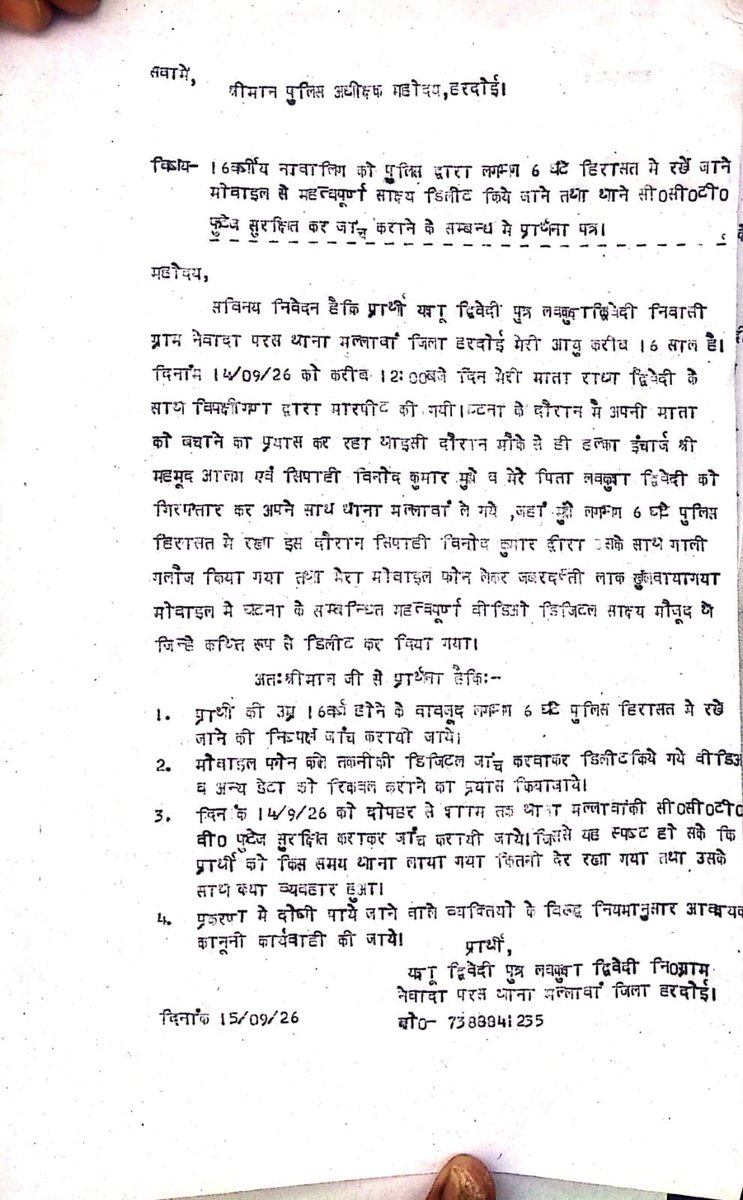 सेवामे,
श्रीमान पुलिस अधीक्षक महोदय, हरदोई।
विषय- 16वर्षीय नावालिग को पुलिस द्वारा लगभग 6 घंटे हिरासत मे रखें जाने
मोवाइल से महत्वपूर्ण साक्ष्य डिलीट किये जाने तथा थाने सी0सी0टी0
फुटेज सुरक्षित कर जांच कराने के सम्बन्ध मे प्रार्थना पत्र।
महोदय,
सविनय निवेदन हैकि प्रार्थी द्विवेदी पुत्र लवकुश द्विवेदी निवासी
ग्राम नेवादा परस थाना मल्लावां जिला हरदोई मेरी आयु करीब 16 साल है।
दिनांम 14/09/26 को करीब 12:00बजे दिन मेरी माता राधा द्विवेदी के
साथ विपक्षीगण द्वारा मारपीट की गयी। घटना के दौरान मै अपनी माता
को बचाने का प्रयास कर रहा थाइसी दौरान मौके से ही हल्का इंचार्ज श्री
महमूद आलम एवं सिपाही विनोद कुमार मुझे व मेरे पिता लवकुश द्विवेदी को
गिरफ्तार कर अपने साथ थाना मल्लावां ले गये ,जहां मुझे लगभग 6 घंटे पुलिस
हिरासत मे रखा इस दौरान सिपाही विनोद कुमार द्वारा उसके साथ गाली
गलौज किया गया तथा मेरा मोवाइल फोन लेकर जबरदस्ती लाक खुलवायागया
मोवाइल मे घटना के सम्बन्धित महत्वपूर्ण वीडिओ डिजिटल साक्ष्य मौजूद थे
जिन्हे कथित रूप से डिलीट कर दिया गया।
अतःश्रीमान जी से प्रार्थना हैकिः-
1. प्रार्थी की उम्र 16वर्ष होने के वावजूद लगभग 6 घंटे पुलिस हिरासत मे रखें
जाने की निष्पक्ष जांच करायी जाये।
2. मोवाइल फोन की तकनीकी डिजिटल जांच करवाकर डिलीट किये गये वीडिअ
व अन्य डेटा को रिकवल कराने का प्रयास कियाजाये।
3. दिनांक 14/9/26 को दोपहर से शाम तक थाना मल्लावांकी सी0सी0टी0
वी0 फुटेज सुरक्षित कराकर जांच करायी जाये। जिससे यह स्पष्ट हो सके कि
प्रार्थी को किस समय थाना लाया गया कितनी देर रखा गया तथा उसके
साथ क्या व्यवहार हुआ।
4. प्रकरण मे दोषी पाये जाने वाले व्यक्तियो के विरूद्ध नियमानुसार आवश्यक
कानूनी कार्यवाही की जाये।
प्रार्थी,
द्विवेदी पुत्र लवकुश द्विवेदी नि0ग्राम
नेवादा परस थाना मल्लावां जिला हरदोई।
दिनांक 15/09/26
मो0- 7388841235